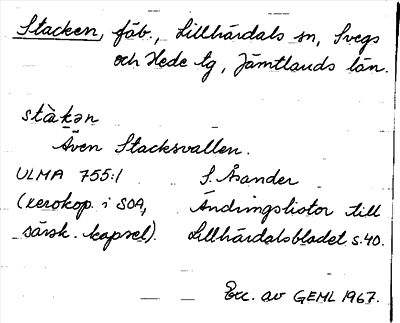 Stacken, fäb., Lillhärdals sn, Svegs
och Hede tg, Jämtlands län.
stàkən
Även Stacksvallen.
ULMA 755:1 S. Åsander
(xerokop. i SOA, Ändringslistor till
särsk. kapsel). Lillhärdalsbladet s. 40.
Exc. av GEML 1967.